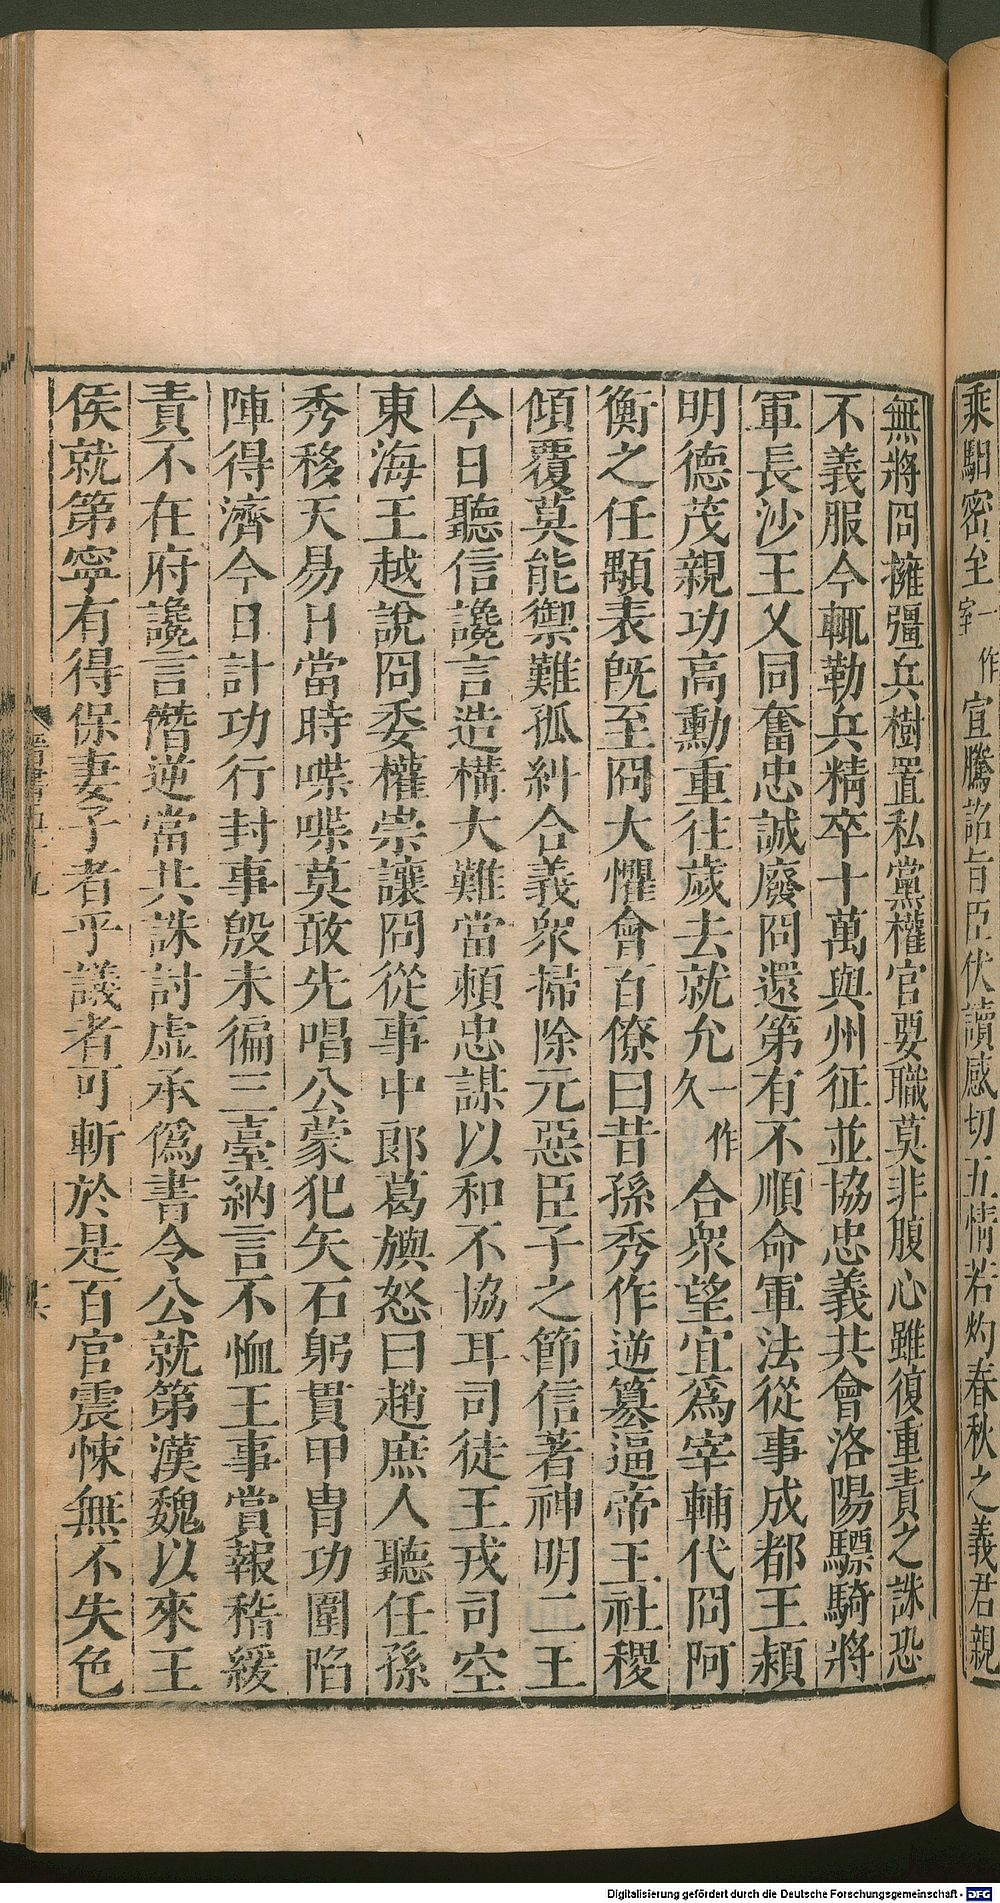 乘馹密至一作室宣騰詔旨臣伏讀感切五情若灼春秋之義君親
無將冏擁彊兵樹置私黨權官要職莫非腹心雖復重責之誅恐
不義服今輒勒兵精卒十萬與州征並協忠義共會洛陽驃騎將
軍長沙王乂同奮忠誠廢冏還第有不順命軍法從事成都王穎
明德茂親功高勳重往歲去就允一作久合衆望宜爲宰輔代冏阿
衡之任顒表旣至冏大懼會百僚曰昔孫秀作逆篡逼帝王社稷
傾覆莫能禦難孤糾合義衆掃除元惡臣子之節信著神明二王
今日聽信讒言造構大難當頼忠謀以和不協耳司徒王戎司空
東海王越說冏委權崇讓冏從事中郎葛旟怒曰趙庶人聽任孫
秀移天易日當時喋喋莫敢先唱公蒙犯矢石躬貫甲冑功圍陷
陣得濟今日計功行封事殷未徧三臺納言不恤王事賞報稽緩
責不在府讒言僭逆當共誅討虛承僞書令公就第漢魏以來王
侯就第寧有得保妻子者乎議者可斬於是百官震悚無不失色
晉書五十九
Digitalisierung gefördert durch die Deutsche Forschungsgemeinschaft - DFG